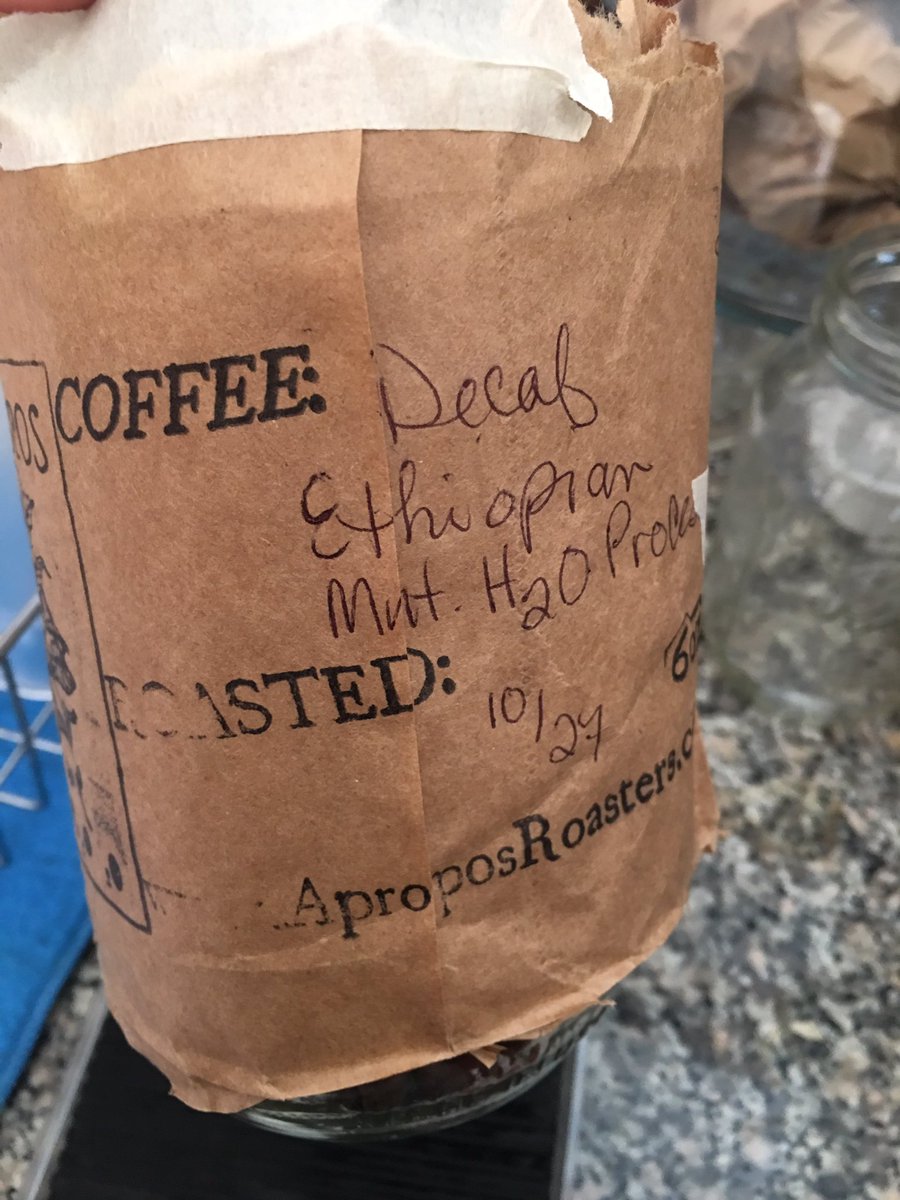 COFFEE: Decaf
Ethiopian
Mnt. H2O
ROASTED: 10/27
AproposRoasters.c